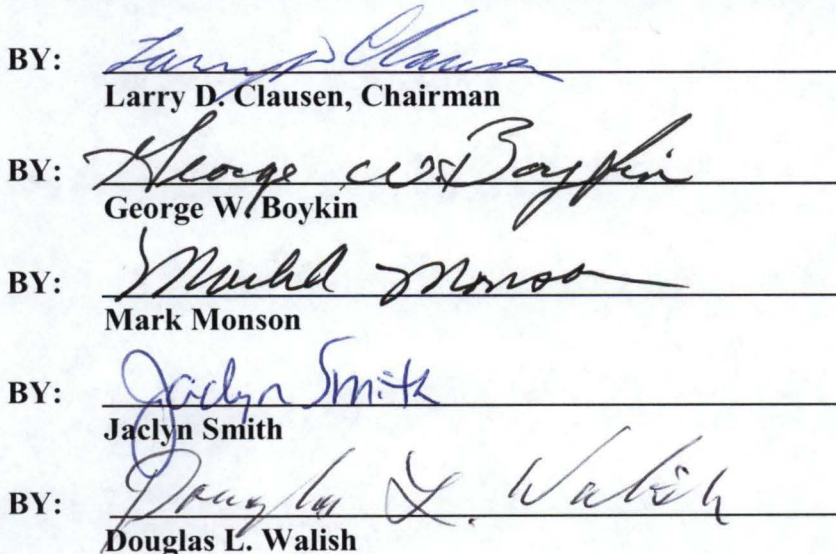 BY: Larry D Clausen
Larry D. Clausen, Chairman
BY: George W. Boykin
George W. Boykin
BY: Mark Monson
Mark Monson
BY: Jaclyn Smith
Jaclyn Smith
BY: Douglas L. Walish
Douglas L. Walish